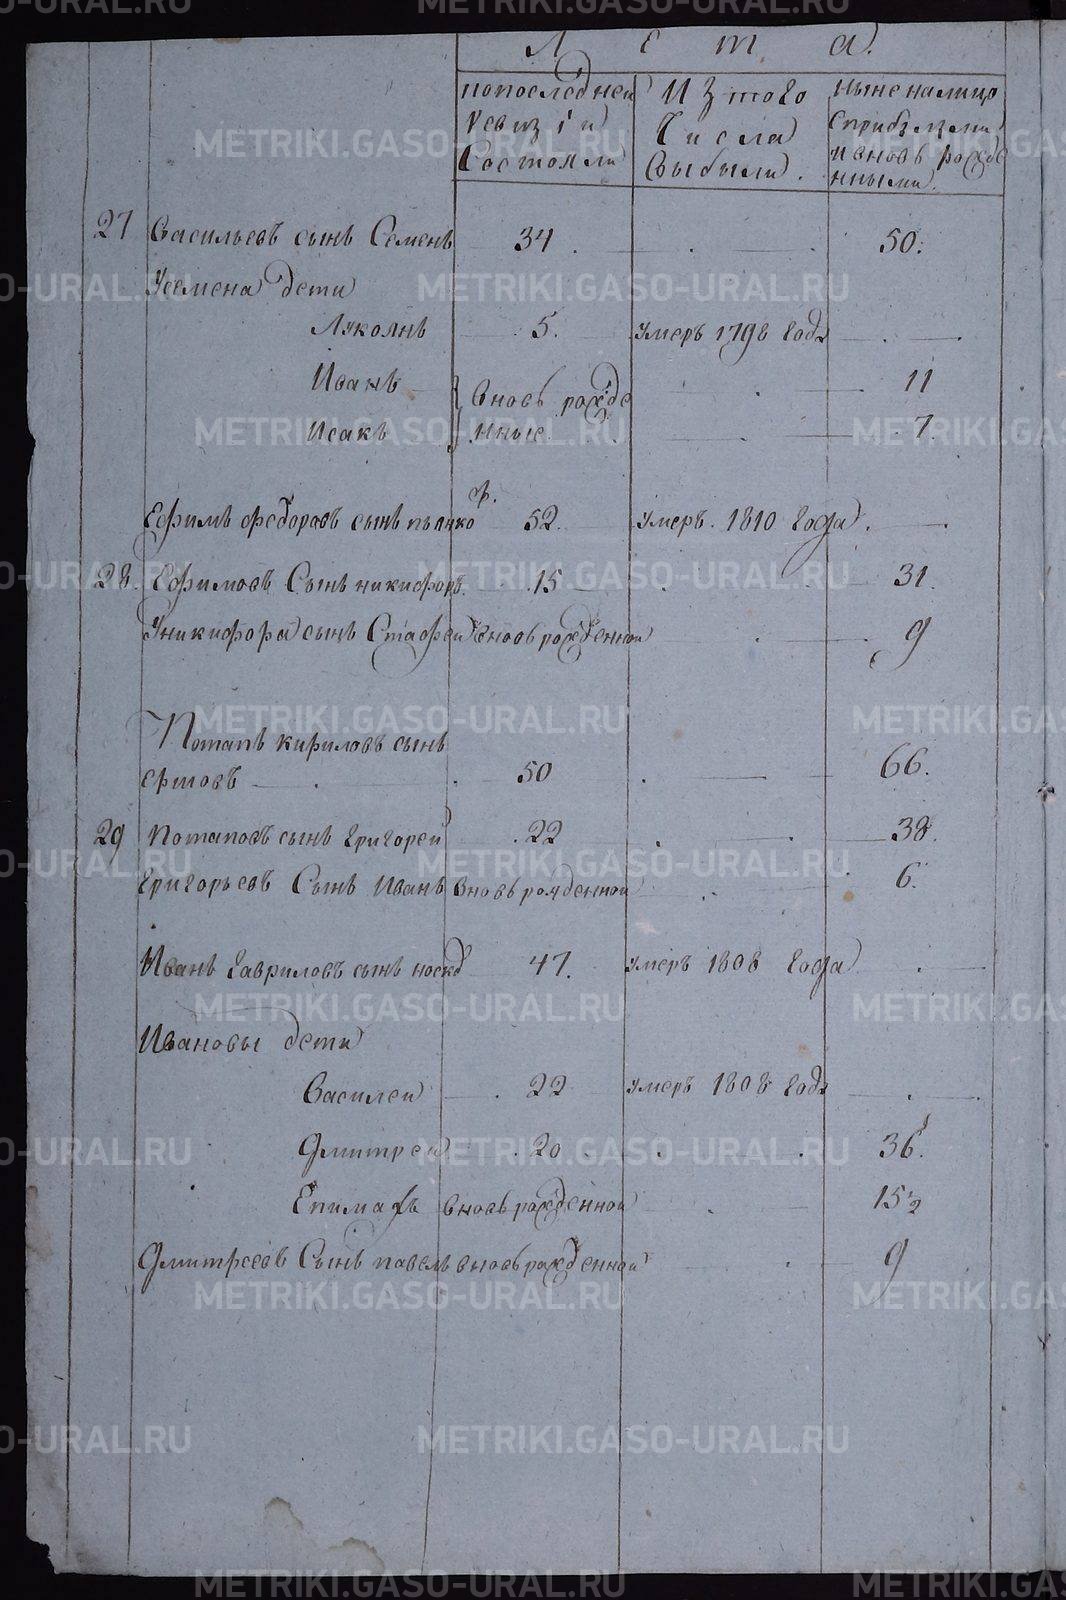 Лета.
попоследней ревизіи состояли
Изтого числа выбыли.
ныне налицо сприбылыми ивновь рожденными.
27 Васильевъ сынъ Семенъ 34. 50.
Усемена дети
Луколнъ 5. умеръ 1798 года
Иванъ вновь рожде 11
Исакъ нные 7.
Ефимъ федоровъ сынъ пьянко 52. умеръ. 1810 года.
28. Ефимовъ Сынъ никифоръ. 15 31.
Уникифора сынъ Стафеи вновьрожденной 9
Потапъ кириловъ сынъ
ершовъ 50 66.
29 Потаповъ сынъ Григорей 22 38.
Григорьевъ Сынъ Иванъ вновьрожденной 6.
Иванъ Гавриловъ сынъ 47. умеръ 1808 года
Ивановы дети
Василеи 22 умеръ 1808 года
Дмитреи 20 36.
Епимахъ вновьрожденной 15½
Дмитреевъ Сынъ павелъ вновьрожденной 9
METRIKI.GASO-URAL.RU